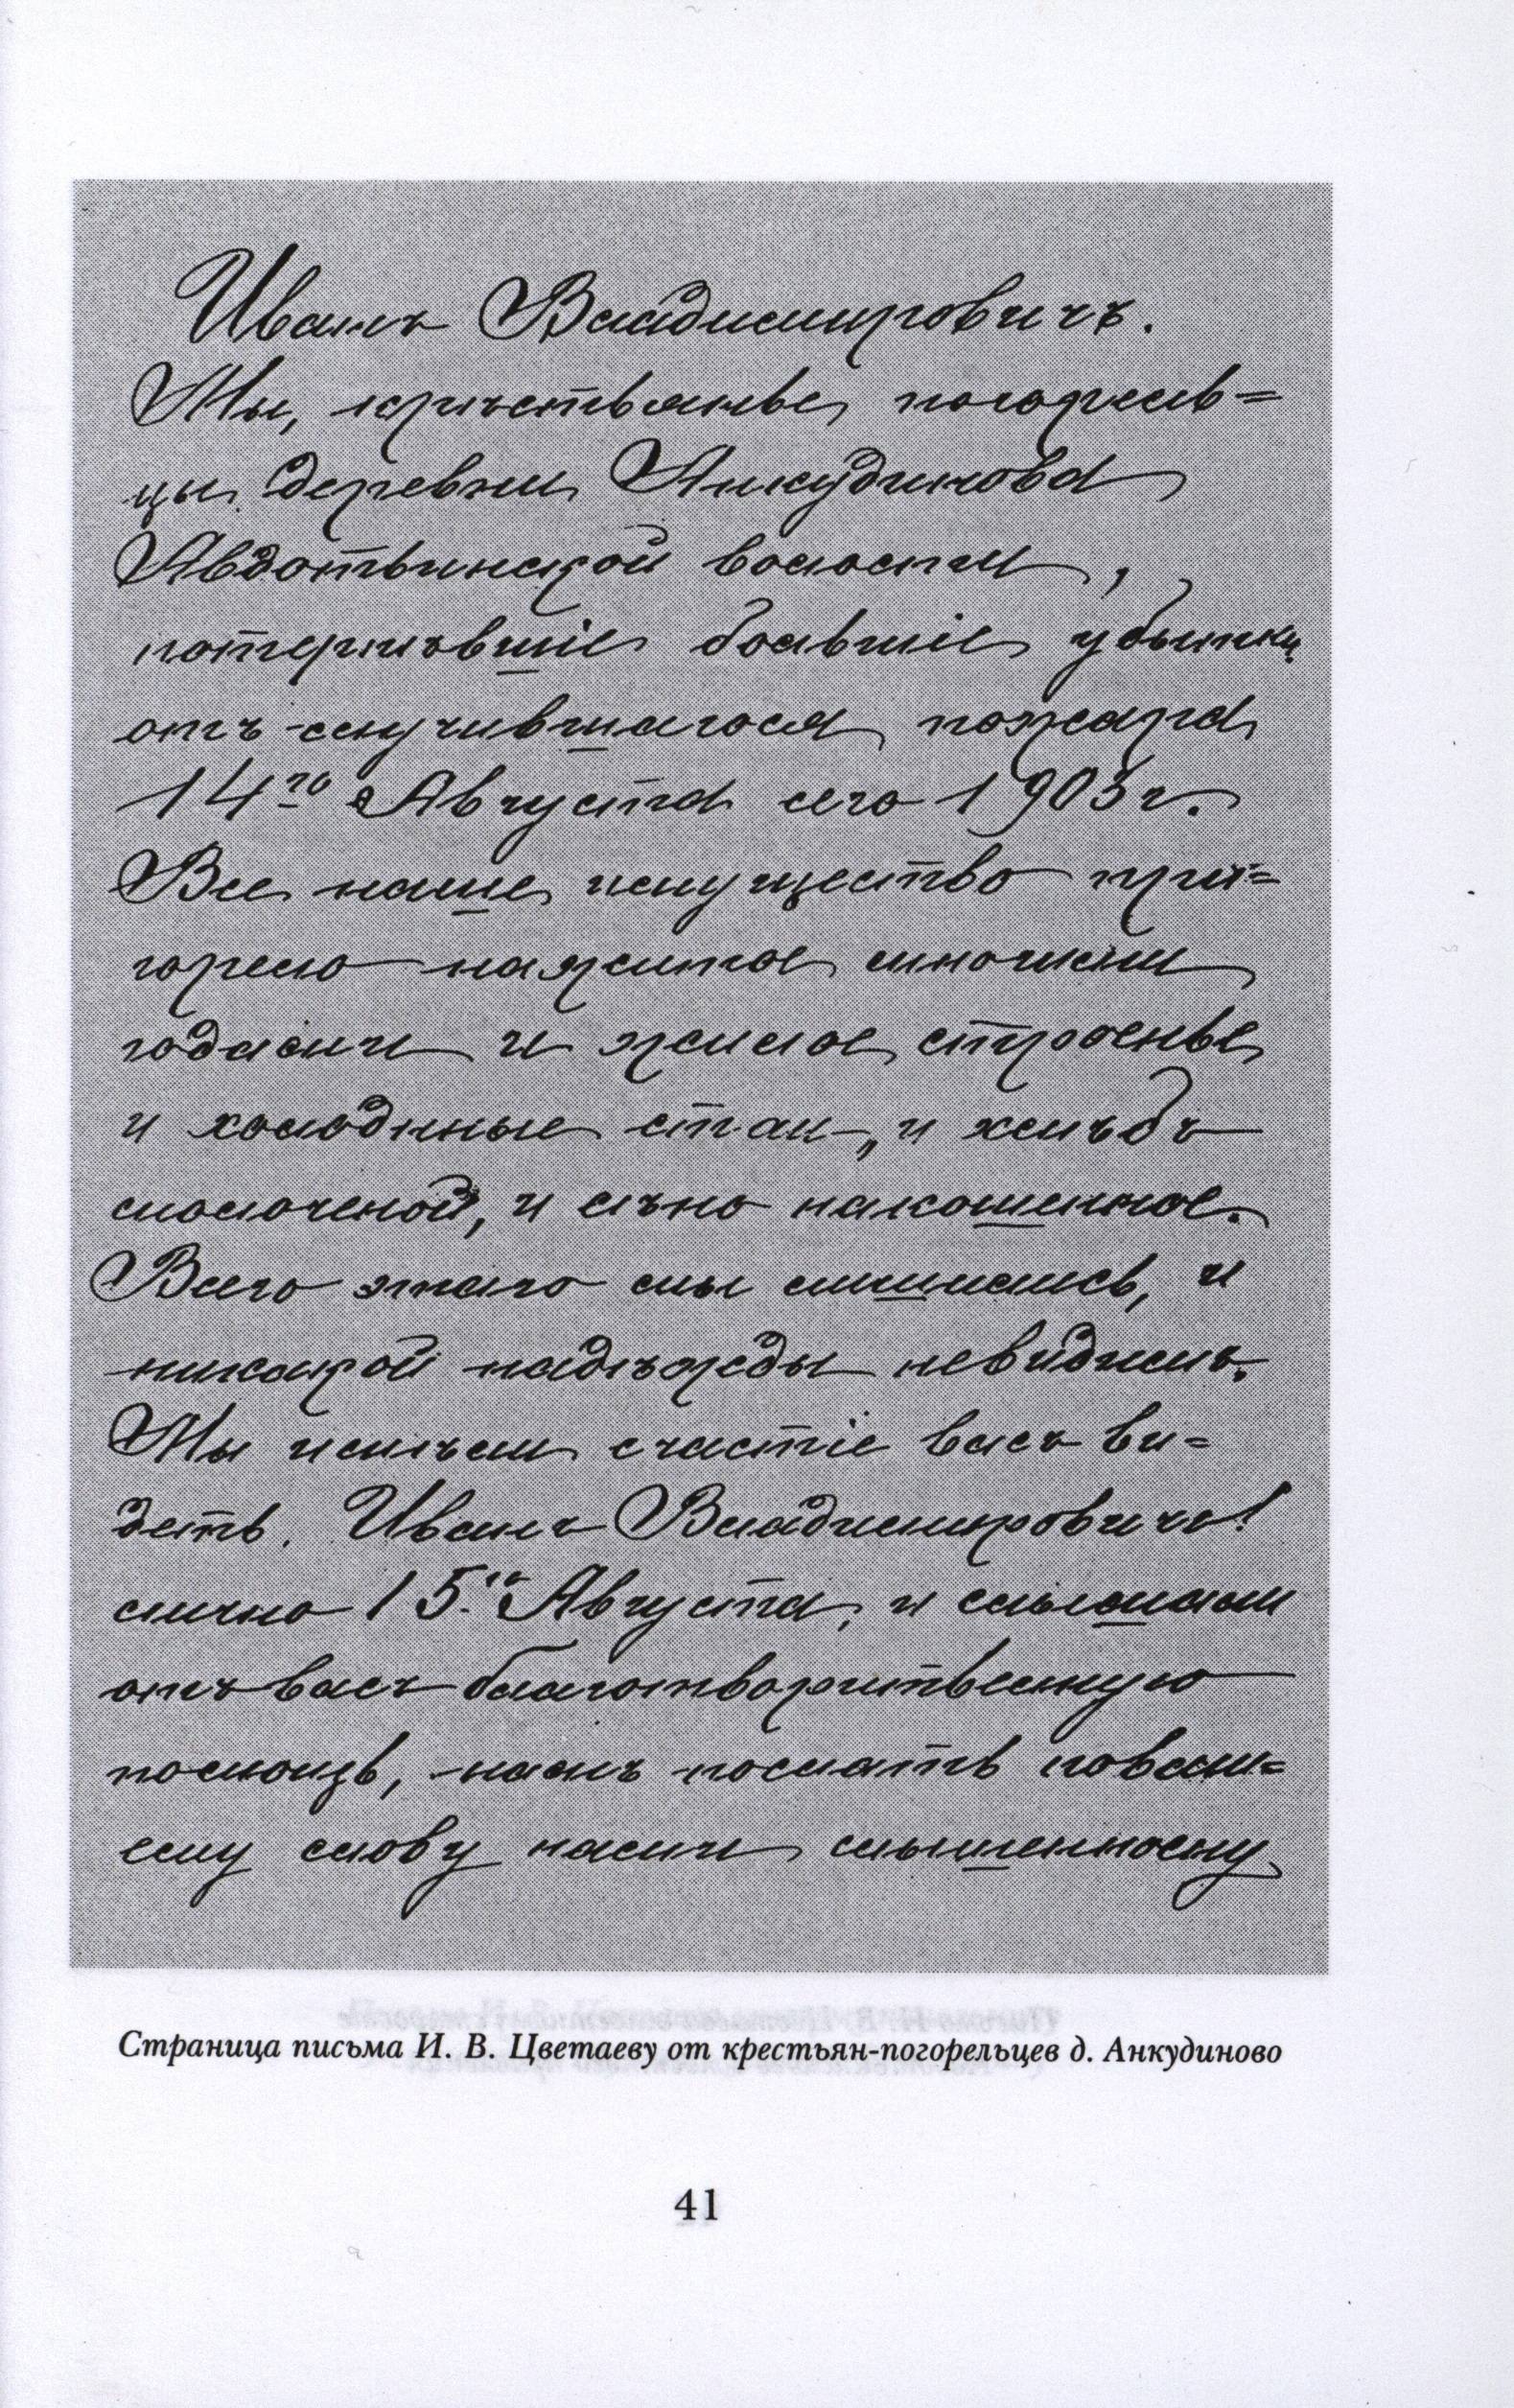 Иванъ Владимировичъ.
Мы, крѣстьянье, погорель=
цы деревни Анкудинова
Авдотьинской волости,
потерпѣвшіе большіе убытки
отъ случившагося пожара
14го Августа сего 1903 г.
Все наше имущество при=
горело нажитое многими
годами и жилое строенье
и холодные стаи, и хлѣбъ
смолоченой, и сѣно накошенное.
Всего этаго мы лишились, и
никакой надѣжды невидимъ.
Мы имѣем счастіе васъ ви=
деть. Иванъ Владимировичъ!
лично 15го Августа, и слышали
отъ васъ благотворительную
помощь, намъ послать повашь=
ему слову нами слышенному
Страница письма И. В. Цветаеву от крестьян-погорельцев д. Анкудиново
41